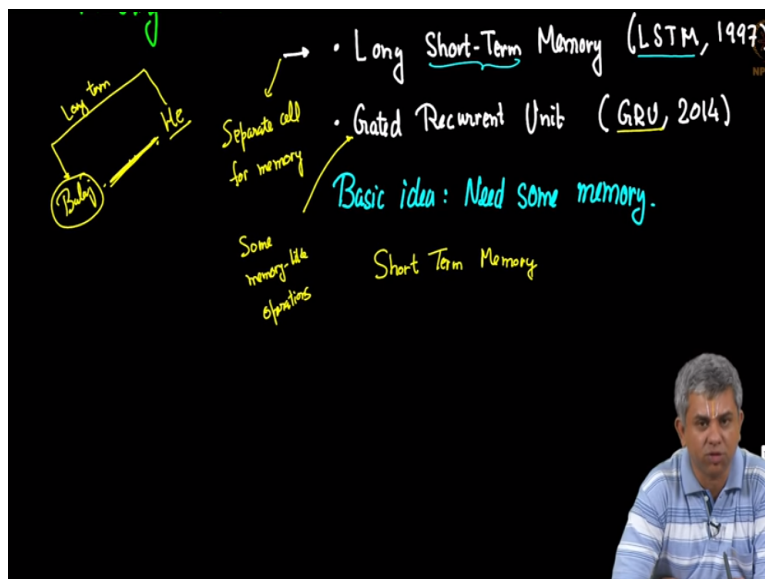 Long term
He
Balaj
Separate cell
for memory
Some
memory-like
operations
• Long Short-Term Memory (LSTM, 1997)
• Gated Recurrent Unit (GRU, 2014)
Basic idea: Need some memory.
Short Term Memory
NP